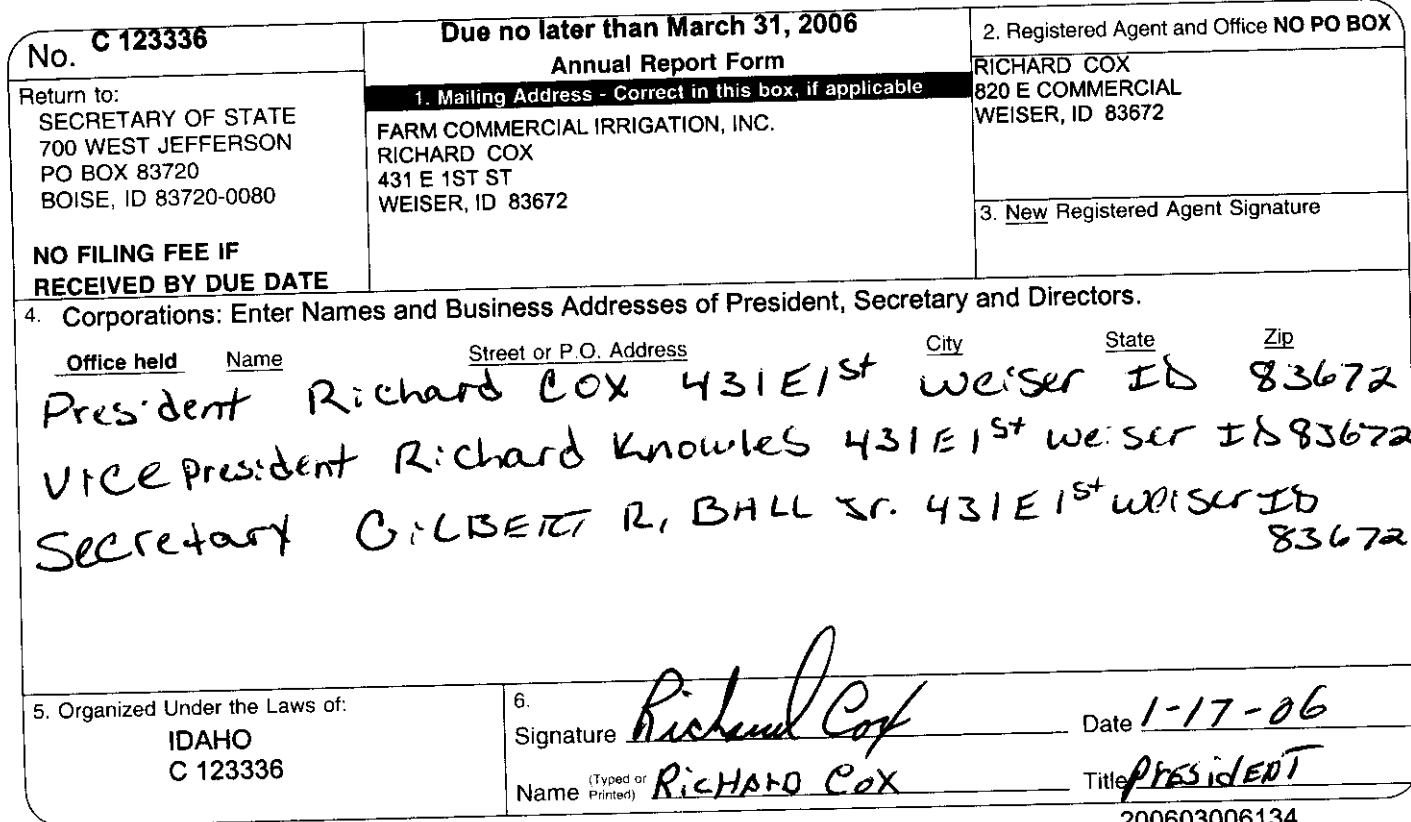 No. C 123336
Return to:
SECRETARY OF STATE
700 WEST JEFFERSON
PO BOX 83720
BOISE, ID 83720-0080
NO FILING FEE IF
RECEIVED BY DUE DATE
Due no later than March 31, 2006
Annual Report Form
1. Mailing Address - Correct in this box, if applicable
FARM COMMERCIAL IRRIGATION, INC.
RICHARD COX
431 E 1ST ST
WEISER, ID 83672
2. Registered Agent and Office NO PO BOX
RICHARD COX
820 E COMMERCIAL
WEISER, ID 83672
3. New Registered Agent Signature
4. Corporations: Enter Names and Business Addresses of President, Secretary and Directors.
Office held Name Street or P.O. Address City State Zip
President Richard Cox 431 E 1st Weiser ID 83672
Vice President Richard Knowles 431 E 1st Weiser ID 83672
Secretary GiLBERT R, BALL Jr. 431 E 1st Weiser ID
83672
5. Organized Under the Laws of:
IDAHO
C 123336
6.
Signature Richard Cox Date 1-17-06
Name (Typed or Printed) RicHARD Cox Title PresidENT
200603006134